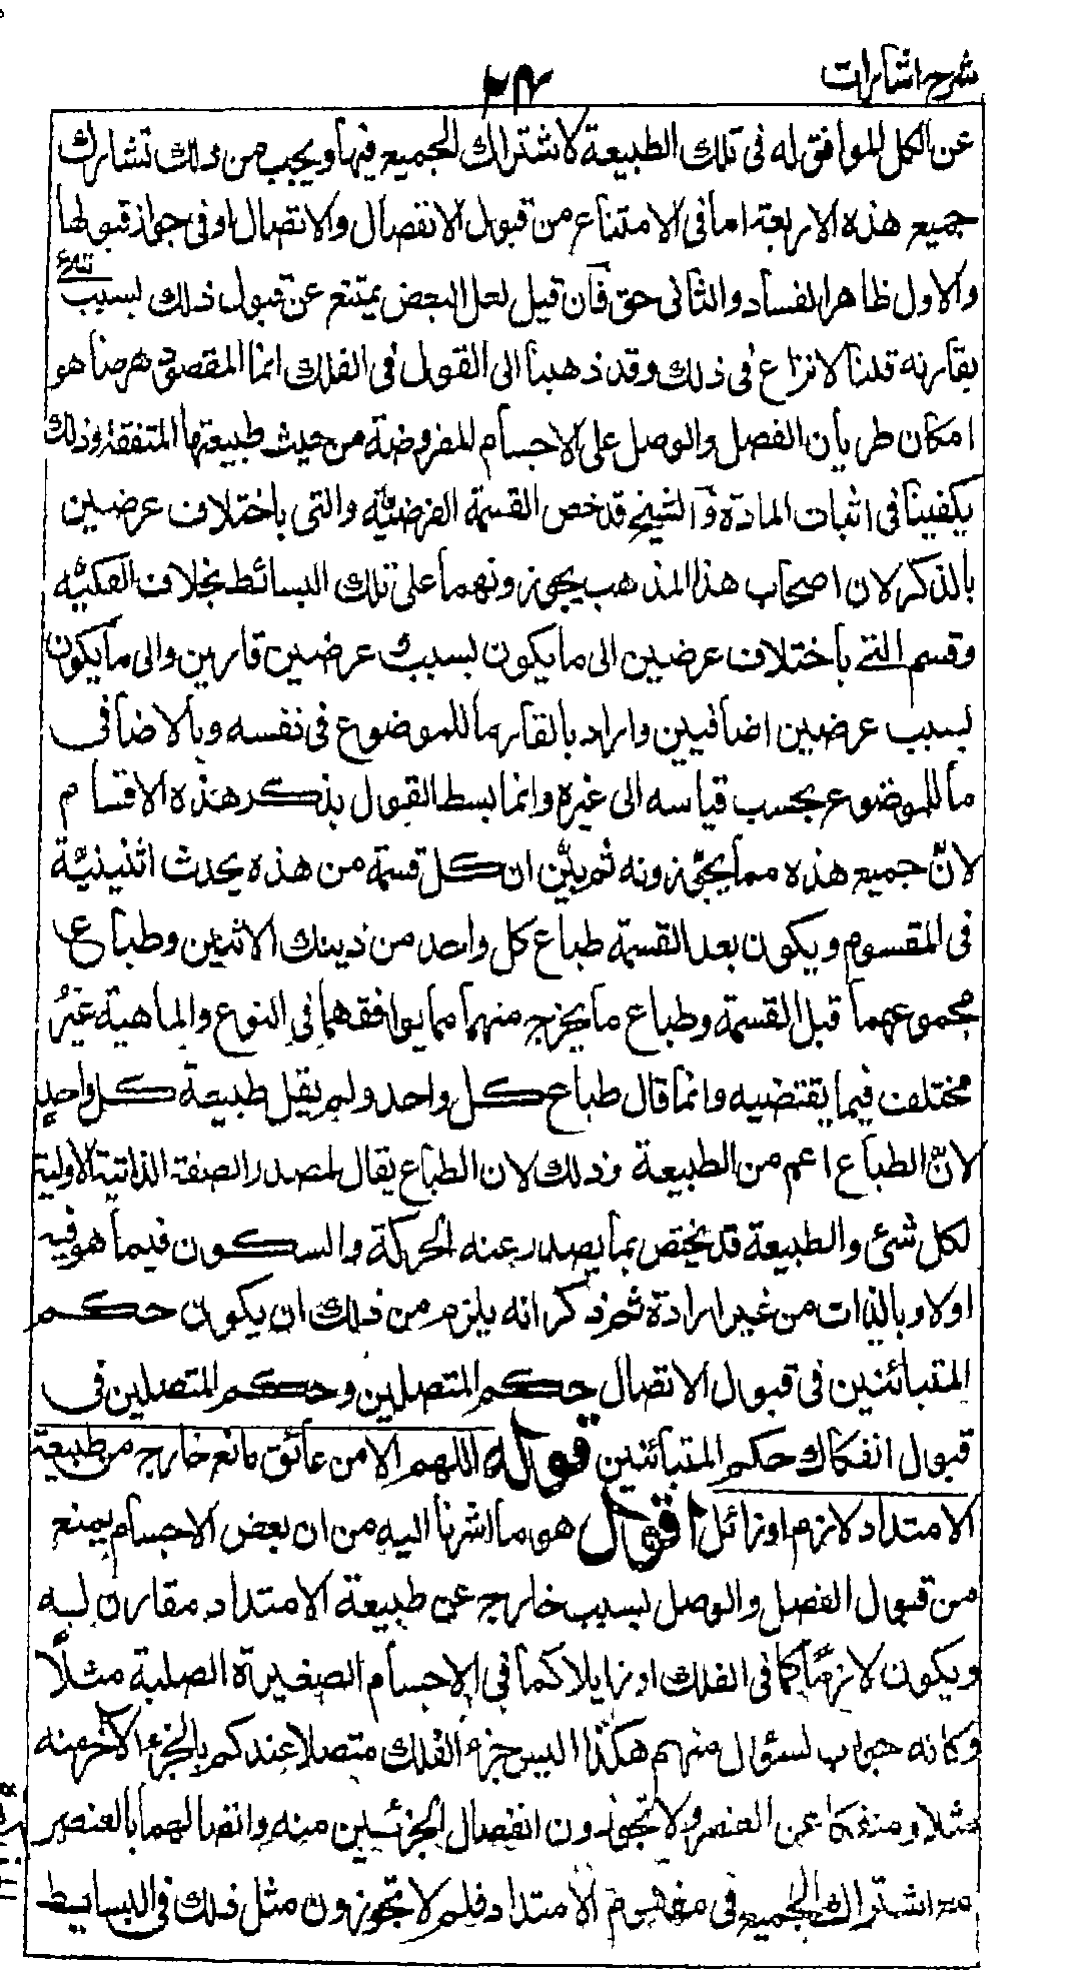 شرح اشارات
عن الكل الموافق له فى تلك الطبيعة لاشتراك الجميع فيها ويجب من ذلك تشارك
جميع هذه الاربعة اما فى الامتناع من قبول الانفصال والاتصال او فى جواز قبولها
والاول ظاهر الفساد والثانى حق فان قيل لعل البعض يمتنع عن قبول ذلك بسبب
يقارنه قلنا لا نزاع فى ذلك وقد ذهبنا الى القول فى الفلك انما المقصود هٰهنا هو
امكان طريان الفصل والوصل على الاجسام المفروضة من حيث طبيعتها المتفقة وذلك
يكفينا فى اثبات المادة والشيخ قد خص القسمة الفرضيّة والتى باختلاف عرضين
بالذكر لان اصحاب هذا المذهب يجوزونهما على تلك البسائط بخلاف الفكيّه
وقسم التى باختلاف عرضين الى ما يكون بسبب عرضين قارين والى ما يكون
بسبب عرضين اضافيين واراد بالقار ما للموضوع فى نفسه وبالاضافى
ما للموضوع بحسب قياسه الى غيره وانما بسط القول بذكر هذه الاقسام
لانّ جميع هذه مما يجوّزونه ثم بيّن ان كل قسمة من هذه يحدث اثنينيّة
فى المقسوم ويكون بعد القسمة طباع كل واحد من ذينك الاثنين وطباع
مجموعهما قبل القسمة وطباع ما يخرج منهما مما يوافقهما فى النوع والماهية غيرُ
مختلف فيما يقتضيه وانما قال طباع كل واحد ولم يقل طبيعة كل واحدٍ
لانّ الطباع اعم من الطبيعة وذلك لان الطباع يقال لمصدر الصفة الذاتية الاولية
لكل شئ والطبيعة قد يختص بما يصدر عنه الحركة والسكون فيما هو فيه
اولا وبالذات من غير ارادة ثم ذكر انه يلزم من ذلك ان يكون حكم
المتبائنين فى قبول الاتصال حكم المتصلين وحكم المتصلين فى
قبول انفكاك حكم المتبائنين قوله اللهم الا من عائق مانع خارج من طبيعة
الامتداد لازم او زائل اقول هو ما اشرنا اليه من ان بعض الاجسام يمنع
من قبول الفصل والوصل بسبب خارج عن طبيعة الامتداد مقارن له
ويكون لازمًا كما فى الفلك او زايلا كما فى الاجسام الصغيرة الصلبة مثلًا
وكانه جواب لسؤال منهم هكذا اليس جزء الفلك متصلا عندكم بالجزء الاخر منه
مثلا ومنفكا عن العنصر ولا تجوزون انفصال الجزئين منه واتصالهما بالعنصر
مع اشتراك الجميع فى مفهوم الامتداد فلم لا تجوزون مثل ذلك فى البسايط